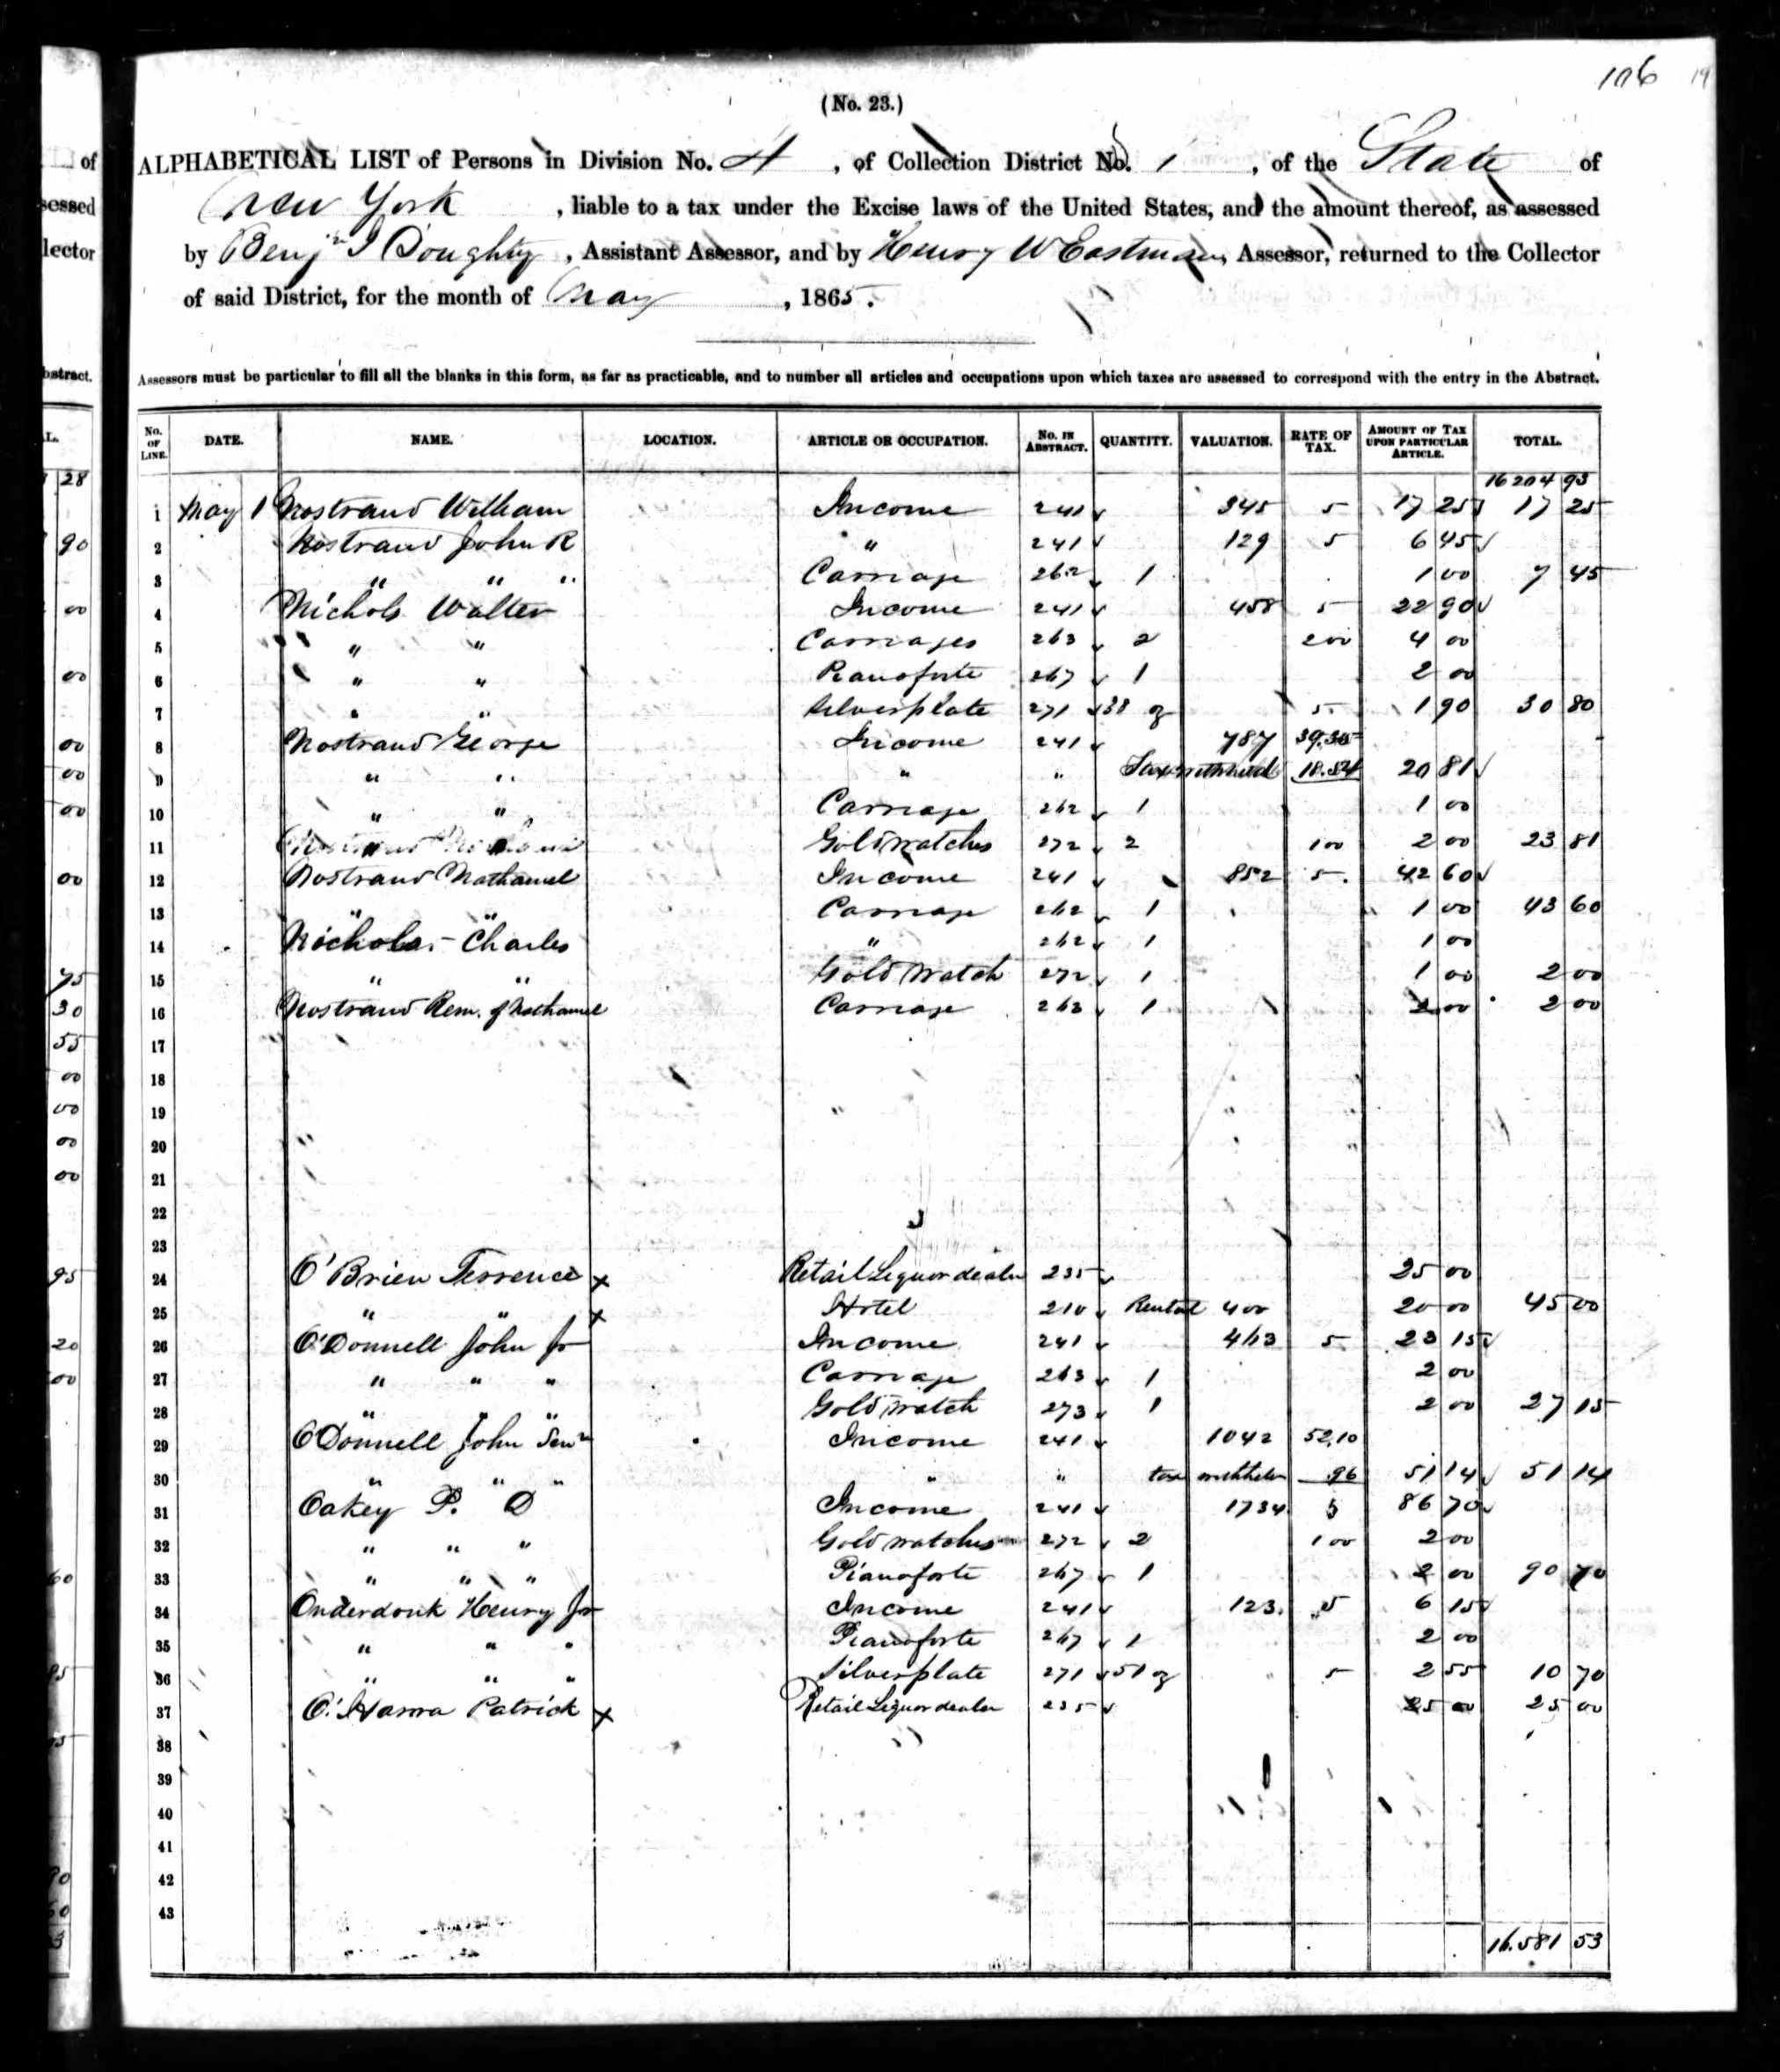 106
(No. 23.)
ALPHABETICAL LIST of Persons in Division No. 4, of Collection District No. 1, of the State of
New York, liable to a tax under the Excise laws of the United States, and the amount thereof, as assessed
by Benj. I Doughty, Assistant Assessor, and by Henry W Eastman, Assessor, returned to the Collector
of said District, for the month of May, 1865.
Assessors must be particular to fill all the blanks in this form, as far as practicable, and to number all articles and occupations upon which taxes are assessed to correspond with the entry in the Abstract.
No. OF LINE. DATE. NAME. LOCATION. ARTICLE OR OCCUPATION. No. IN ABSTRACT. QUANTITY. VALUATION. RATE OF TAX. AMOUNT OF TAX UPON PARTICULAR ARTICLE. TOTAL.
16204 93
1 May 1 Nostrand William Income 241 345 5 17 25 17 25
2 Nostrand John R " 241 129 5 6 45
3 " " " Carriage 262 1 1 00 7 45
4 Nichols Walter Income 241 458 5 22 90
5 " " Carriages 263 2 200 4 00
6 " " Pianoforte 267 1 2 00
7 " " Silverplate 271 38 oz 5 1 90 30 80
8 Nostrand George Income 241 787 39.35
9 " " " " Tax withheld 18.54 20 81
10 " " Carriage 262 1 1 00
11 " " Gold watches 272 2 100 2 00 23 81
12 Nostrand Nathaniel Income 241 852 5 42 60
13 " " Carriage 262 1 1 00 43 60
14 Nichols Charles " 262 1 1 00
15 " " Gold watch 272 1 1 00 2 00
16 Nostrand Rem. of Nathaniel Carriage 263 1 2 00 2 00
17
18
19
20
21
22
23
24 O'Brien Terrence x Retail Liquor dealer 235 25 00
25 " " x Hotel 210 Rental 400 20 00 45 00
26 O'Donnell John Jr Income 241 463 5 23 15
27 " " " Carriage 263 1 2 00
28 " " " Gold watch 273 1 2 00 27 15
29 O'Donnell John Senr Income 241 1042 52.10
30 " " " " " tax withheld .96 51 14 51 14
31 Oakey P. D Income 241 1734 5 86 70
32 " " " Gold watches 272 2 100 2 00
33 " " " Pianoforte 267 1 2 00 90 70
34 Onderdonk Henry Jr Income 241 123. 5 6 15
35 " " " Pianoforte 267 1 2 00
36 " " " Silverplate 271 51 oz 5 2 55 10 70
37 O'Harra Patrick x Retail Liquor dealer 235 25 00 25 00
38
39
40
41
42
43
16.581 53